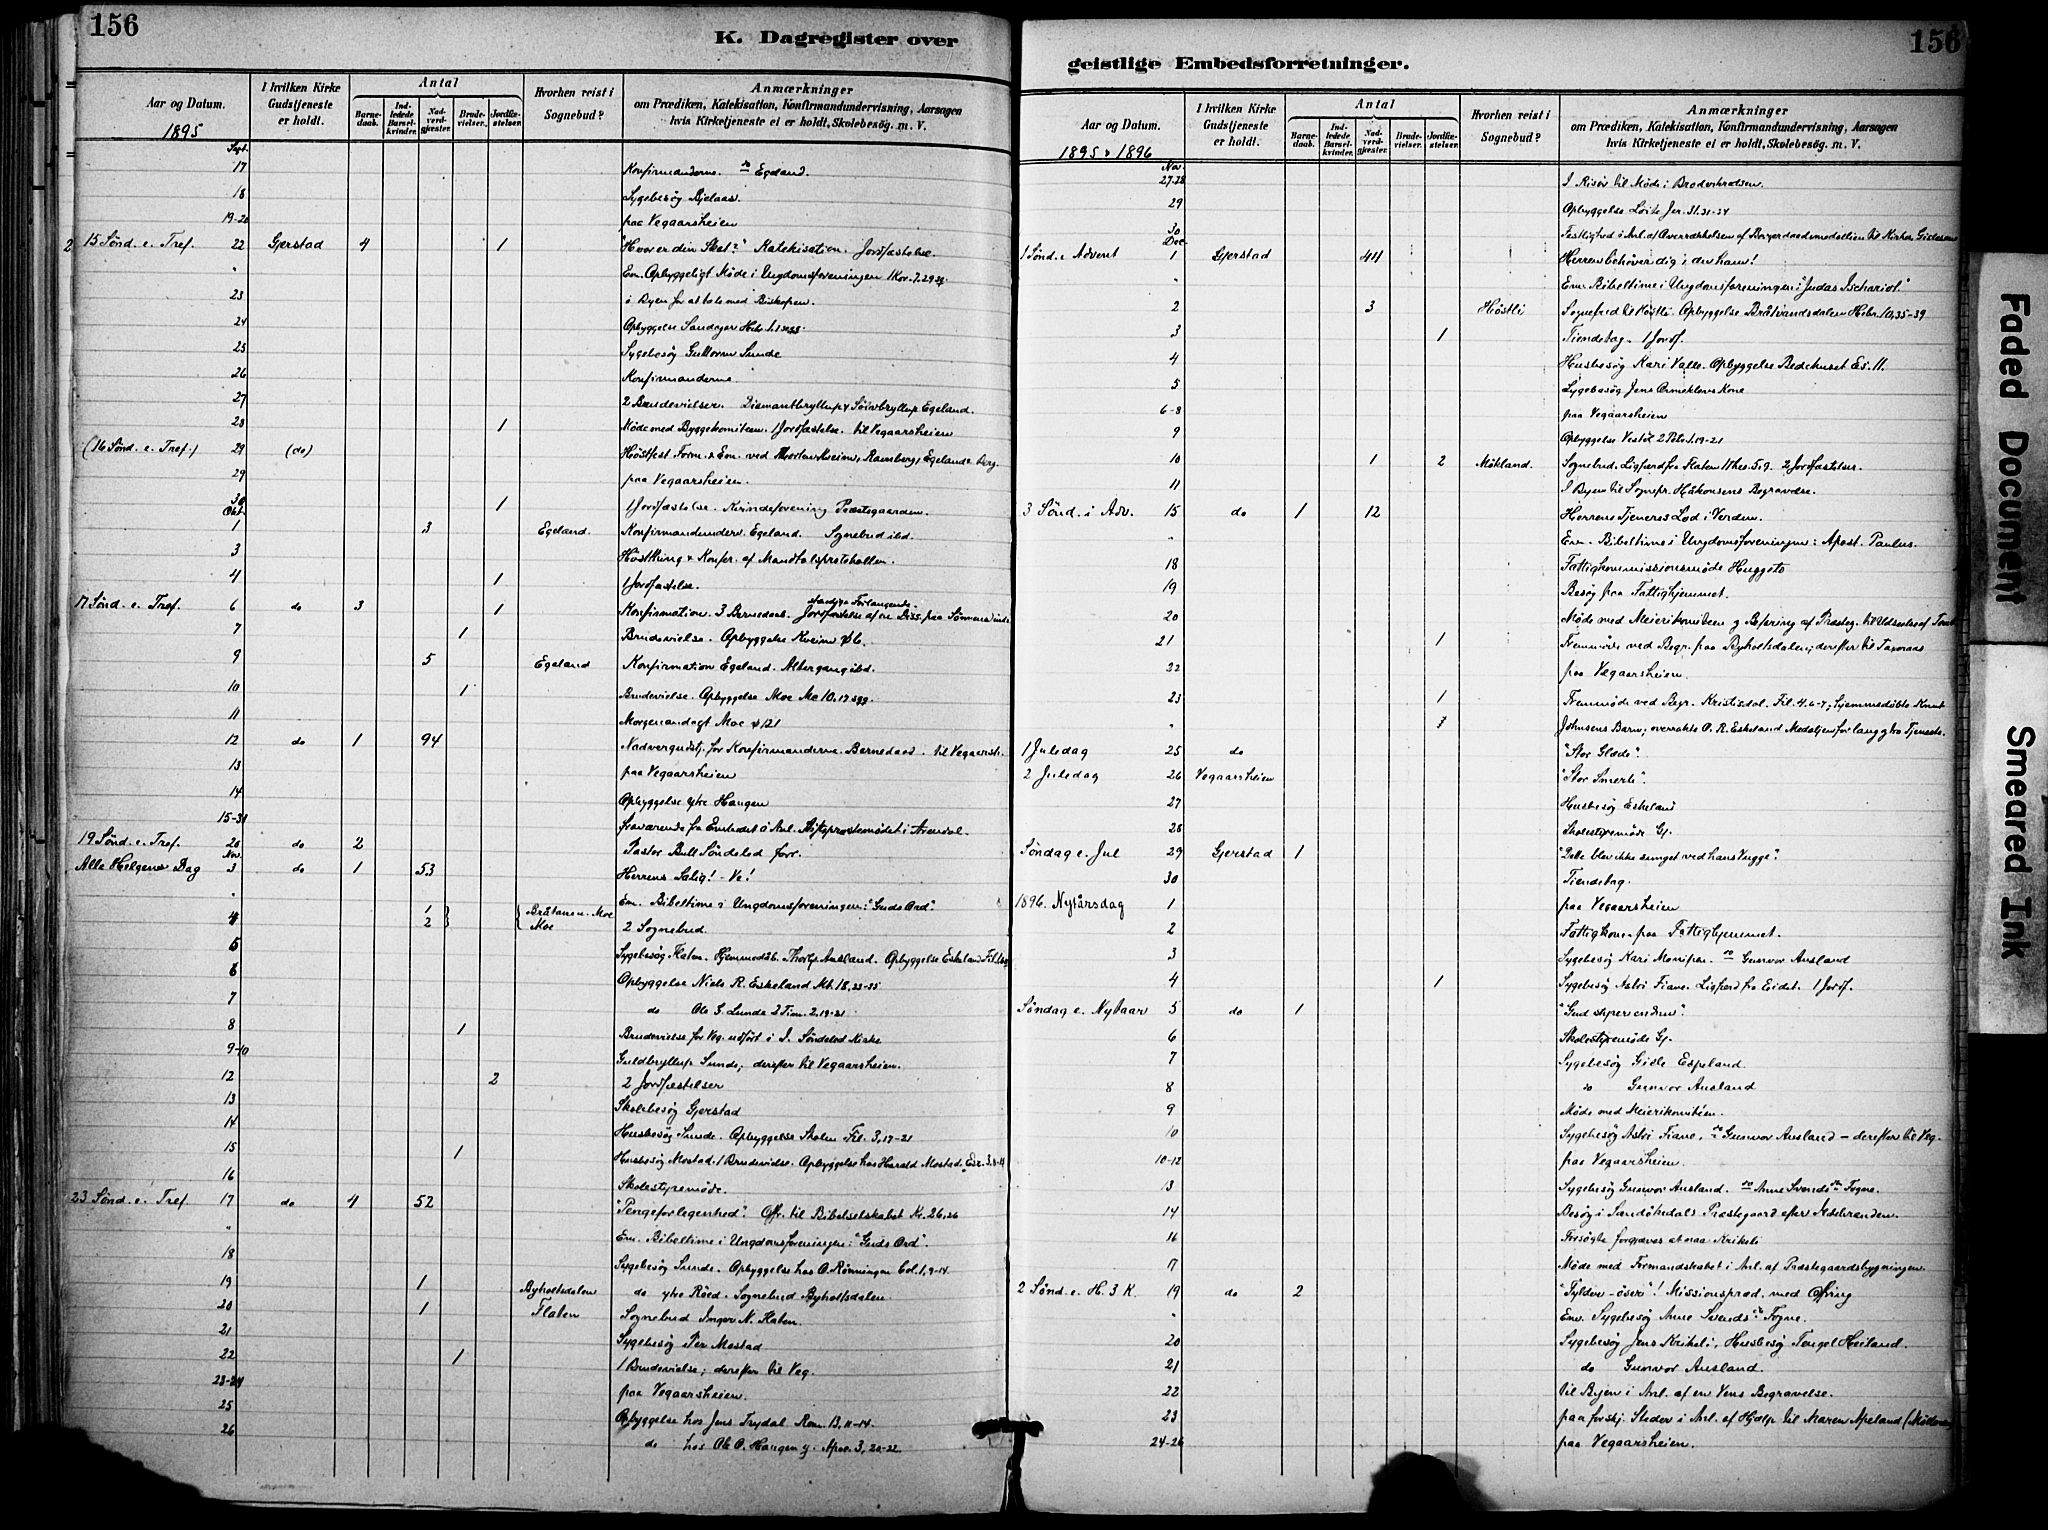 156
K. Dagregister over
Aar og Datum.
I hvilken Kirke Gudstjeneste er holdt.
Antal
Barnedaab.
Indledede Barselkvinder.
Nadverdgjæster.
Brudevielser.
Jordfæstelser.
Hvorhen reist i Sognebud?
Anmærkninger
om Prædiken, Katekisation, Konfirmandundervisning, Aarsagen
hvis Kirketjeneste ei er holdt, Skolebesøg. m. V.
1895
Sept.
17 Konfirmanderne. do Egeland.
18 Sygebesøg
19-20 paa Vegaarsheien
15 Sønd. e. Tref. 22 Gjerstad 4 1 "Hvor er din Skat?" Katekisation. Jordfæstelse.
" Em. Opbyggeligt Møde i Ungdomsforeningen 1 Kor. 7.29
23 i Byen for at tale med Biskopen.
24 Opbyggelse Sandager Hebr.
25 Sygebesøg Guttorm Sunde
26 Konfirmanderne
27 2 Brudevielser. Diamantbryllup & Sølvbryllup Egeland.
28 1 Møde med Byggekomiteen. 1 Jordfæstelse. til Vegaarsheien
(16 Sønd. e. Tref.) 29 (do) Høstfest Form. & Em. ved
29 paa Vegaarsheien.
30 1 1 Jordfæstelse. Kvindeforening Præstegaarden.
Okt.
1 3 Egeland. Konfirmandunderv. Egeland. Sognebud ibd.
3 Høstthing & Konfer. af Mandtalsprotokollen.
4 1 1 Jordfæstelse.
17 Sønd. e. Tref. 6 do 3 1 Konfirmation. 3 Barnedaab. Jordfæstelse af en Diss. paa Sønnens
7 1 Brudevielse. Opbyggelse Kveim
9 5 Egeland Konfirmation Egeland. Altergang ibd.
10 1 Brudevielse. Opbyggelse Moe Mc 10.17
11 Morgenandagt Moe ψ 121
12 do 1 94 Nadvergudstj. for Konfirmanderne. Barnedaab. til Vegaarsh.
13 paa Vegaarsheien
14 Opbyggelse ytre Haugen
15-31 Fraværende fra Embedet i Anl. i Arendal.
19 Sønd. e. Tref. 20 do 2 Pastor Bull Søndeled forr.
Nov.
Alle Helgens Dag 3 do 1 53 Herrens Salig! - Ve!
" Em. Bibeltime i Ungdomsforeningen: "Guds Ord".
4 1 2 Bråtane u. Moe Moe 2 Sognebud.
5 Sygebesøg Flaten. Hjemmedåb. Ausland. Opbyggelse Eskeland
6 Opbyggelse Niels R. Eskeland Mt. 18,23-35
7 do Ole G. Lunde 2 Tim. 2.19-21
8 1 Brudevielse for Veg. udført i Søndeled Kirke
9-10 Guldbryllup Sunde; derefter til Vegaarsheien.
12 2 2 Jordfæstelser
13 Skolebesøg Gjerstad
14 Husbesøg Sunde. Opbyggelse Skolen Fil. 3, 17-21
15 1 Husbesøg Mostad. 1 Brudevielse. Opbyggelse hos Harald Mostad.
16 Skolestyremøde.
23 Sønd. e. Tref. 17 do 4 52 "Pengeforlegenhed". Ofr. til Bibelselskabet Kr. 26,26
" Em. Bibeltime i Ungdomsforeningen: "Guds Ord".
18 Sygebesøg Sunde. Opbyggelse hos O. Rønningen Col. 1, 9-14
19 1 Byholtsdalen do ytre Røed. Sognebud Byholtsdalen
20 1 Flaten Sognebud Inger N. Flaten.
21 Sygebesøg Per Mostad
22 1 1 Brudevielse; derefter til Veg.
23-24 paa Vegaarsheien.
25 Opbyggelse hos Jens Trydal Rom. 13, 11-14.
26 do hos Ole O. Haugen y. Apoc. 3, 20-22
geistlige Embedsforretninger.
156
Aar og Datum.
I hvilken Kirke Gudstjeneste er holdt.
Antal
Barnedaab.
Indledede Barselkvinder.
Nadverdgjæster.
Brudevielser.
Jordfæstelser.
Hvorhen reist i Sognebud?
Anmærkninger
om Prædiken, Katekisation, Konfirmandundervisning, Aarsagen
hvis Kirketjeneste ei er holdt, Skolebesøg. m. V.
1895 & 1896
Nov
27-28 I Risør til Møde i Broderkredsen.
29 Opbyggelse Løite Jer. 31.31-34
30 Festlighed i Anl. af Overrækkelsen af Borgerdaadsmedaillen til Kirkes.
Dec.
1 Sønd. i Advent 1 Gjerstad 44 Herren behøver dig, du ham!
" Em. Bibeltime i Ungdomsforeningen: "Judas Ischariot."
2 3 Høstli Sognebud til Høstli. Opbyggelse Bråtvandsdalen Hebr. 10,35-39
3 1 Tiendetag. 1 Jordf.
4 Husbesøg Kari Valle. Opbyggelse Bedehuset Es. 11.
5 Sygebesøg Jens Kone
6-8 paa Vegaarsheien
9 Opbyggelse Vestøl 2 Petr. 1.19-21
10 1 2 Mökland. Sognebud. Ligfærd fra Flaten 1 Thes. 5.9. 2 Jordfæstelser.
11 I Byen til Sognepr. Håkonsens Begravelse.
3 Sønd. i Adv. 15 do 1 12 Herrens Tjeneres Lod i Verden.
" Em. Bibeltime i Ungdomsforeningen: Apost. Paulus.
18 Fattigkommissionsmøde Huggeto
19 Besøg paa Fattighjemmet.
20 Møde med Meierikomiteen og Befaring af Præsteg. til Udseelse af
21 1 Fremmøde ved Begr. paa Byholtsdalen; derefter til
22 paa Vegaarsheien.
23 1 Fremmøde ved Begr. Kristisdal. Fil. 4.6-7; hjemmedøbte Knut
" 1 Johnsens Barn; overrakte O. R. Eskeland Medaljen for lang & tro Tjeneste.
1 Juledag 25 do "Stor Glæde".
2 Juledag 26 Vegaarsheien "Stor Smerte".
27 Husbesøg Eskeland
28 Skolestyremøde Gj.
Søndag e. Jul 29 Gjerstad 1 "Dette blev ikke sunget ved hans Vugge".
30 Tiendetag.
1896. Nytårsdag 1 paa Vegaarsheien
2 Fattigkom. paa Fattighjemmet.
3 Sygebesøg Kari do Gunvor Ausland
4 1 Sygebesøg Astri Fiane. Ligfærd fra Eidet. 1 Jordf.
Søndag e. Nytaar 5 do 1 "Gud styrer endnu".
6 Skolestyremøde Gj.
7 Sygebesøg Gisle Espeland.
8 do Gunvor Ausland
9 Møde med Meierikomiteen.
10 Sygebesøg Astri Fiane, do Gunvor Ausland - derefter til Veg.
10-12 paa Vegaarsheien.
13 Sygebesøg Gunvor Ausland. do Anne Svendsdtr Fogne.
14 Besøg i Sandøkedals Præstegaard efter Ildebranden.
16 Forsøgte forgjæves at naa Krikeli
17 Møde med Formandskabet i Anl. af Præstegaardsbygningen.
2 Sønd. e. H. 3 K. 19 do 2 "Fylder - øser"! Missionspræd. med Ofring
" Em. Sygebesøg Anne Svendsdtr Fogne.
20 Sygebesøg Jens Krikeli, Husbesøg Tengel Heiland.
21 do Gunvor Ausland.
22 til Byen i Anl. af en Vens Begravelse.
23 paa forskj. Steder i Anl. af Hjælp til Maren Apeland
24-26 paa Vegaarsheien.
Faded Document
Smeared Ink